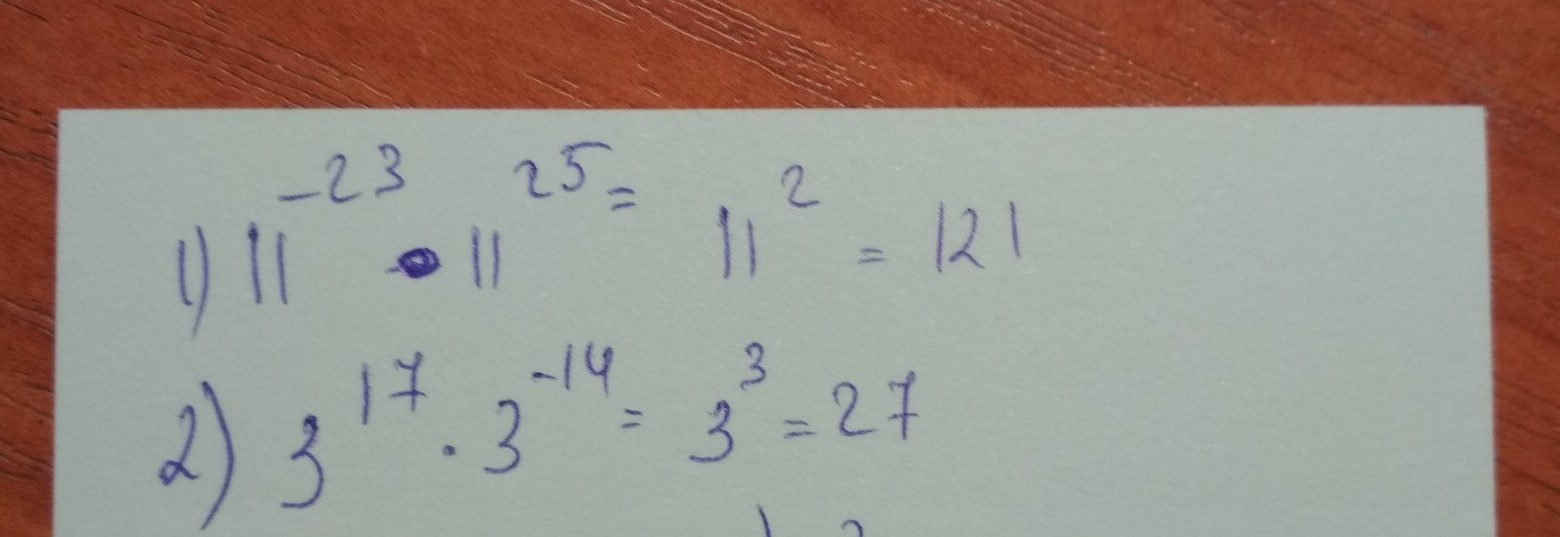 1) 11^-23 · 11^25 = 11^2 = 121
2) 3^17 · 3^-14 = 3^3 = 27